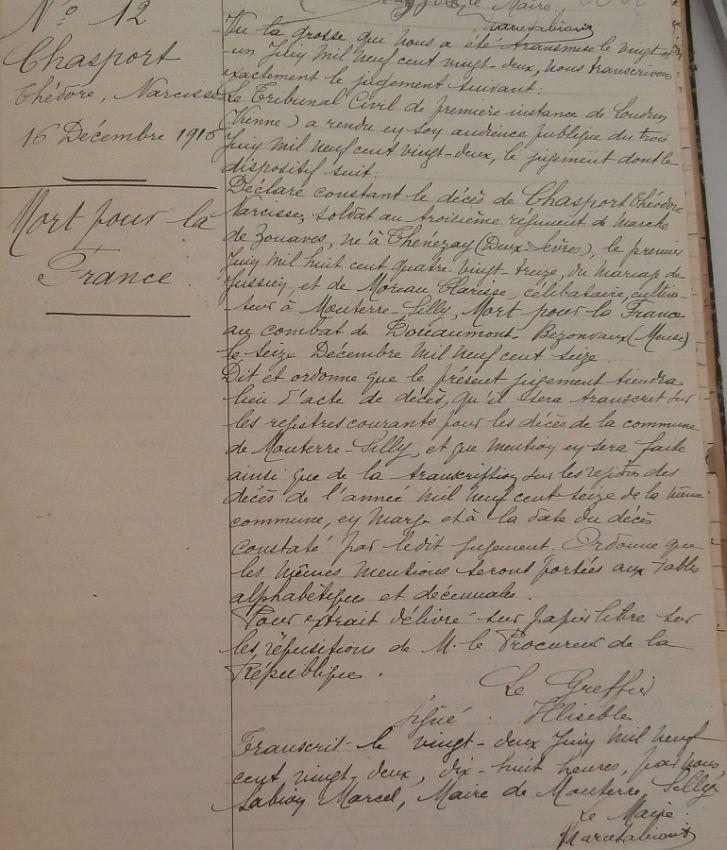 le Maire,
N° 12
Chasport
Théodore, Narcisse
16 Décembre 1916
Mort pour la
France
Vu la grosse qui nous a été transmise le vingt et
un Juin mil neuf cent vingt-deux, nous transcrivons
exactement le jugement suivant:
Le Tribunal Civil de première instance de Loudun
(Vienne) a rendu en son audience publique du trois
Juin mil neuf cent vingt-deux, le jugement dont le
dispositif suit:
Déclare constant le décès de Chasport Théodore
Narcisse, soldat au troisième régiment de marche
de Zouaves, né à Thénezay (Deux-Sèvres), le premier
Juin mil huit cent quatre-vingt-treize, du mariage de
et de Moreau Clarisse, célibataire, cultiva-
teur à Mouterre-Silly, Mort pour la France
au combat de Douaumont-Bezonvaux (Meuse)
le seize Décembre mil neuf cent seize.
Dit et ordonne que le présent jugement tiendra
lieu d'acte de décès, qu'il sera transcrit sur
les registres courants pour les décès de la commune
de Mouterre-Silly, et que mention en sera faite
ainsi que de la transcription sur les registres des
décès de l'année mil neuf cent seize de la même
commune, en marge et à la date du décès
constaté par ledit jugement. Ordonne que
les mêmes mentions seront portées aux tables
alphabétiques et décennales.
Pour extrait délivré sur papier libre sur
les réquisitions de M. le Procureur de la
République.
Le Greffier
signé: Illisible
Transcrit le vingt-deux Juin mil neuf
cent vingt-deux, dix-huit heures, par nous
Labion Marcel, Maire de Mouterre-Silly
Le Maire